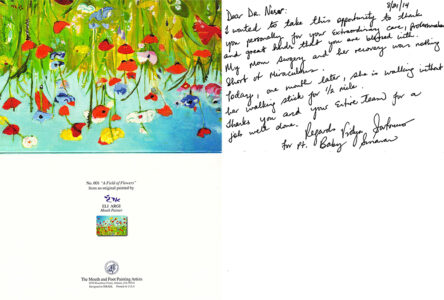 No. 001 "A Field of Flowers"
from an original painted by
ELI ARGI
Mouth Painter
The Mouth and Foot Painting Artists
Printed in U.S.A.
8/01/14
Dear Dr. Naser.
I wanted to take this opportunity to thank
you personally for your Extraordinary care, Professionalism
and great hands that you are blessed with.
My mom surgery and her recovery was nothing
Short of Miraculous.
Today, one month later, she is walking without
her walking stick for 1/2 mile.
thanks you and your Entire Team for a
job well done. Regards Vidya
for Pt. Baby